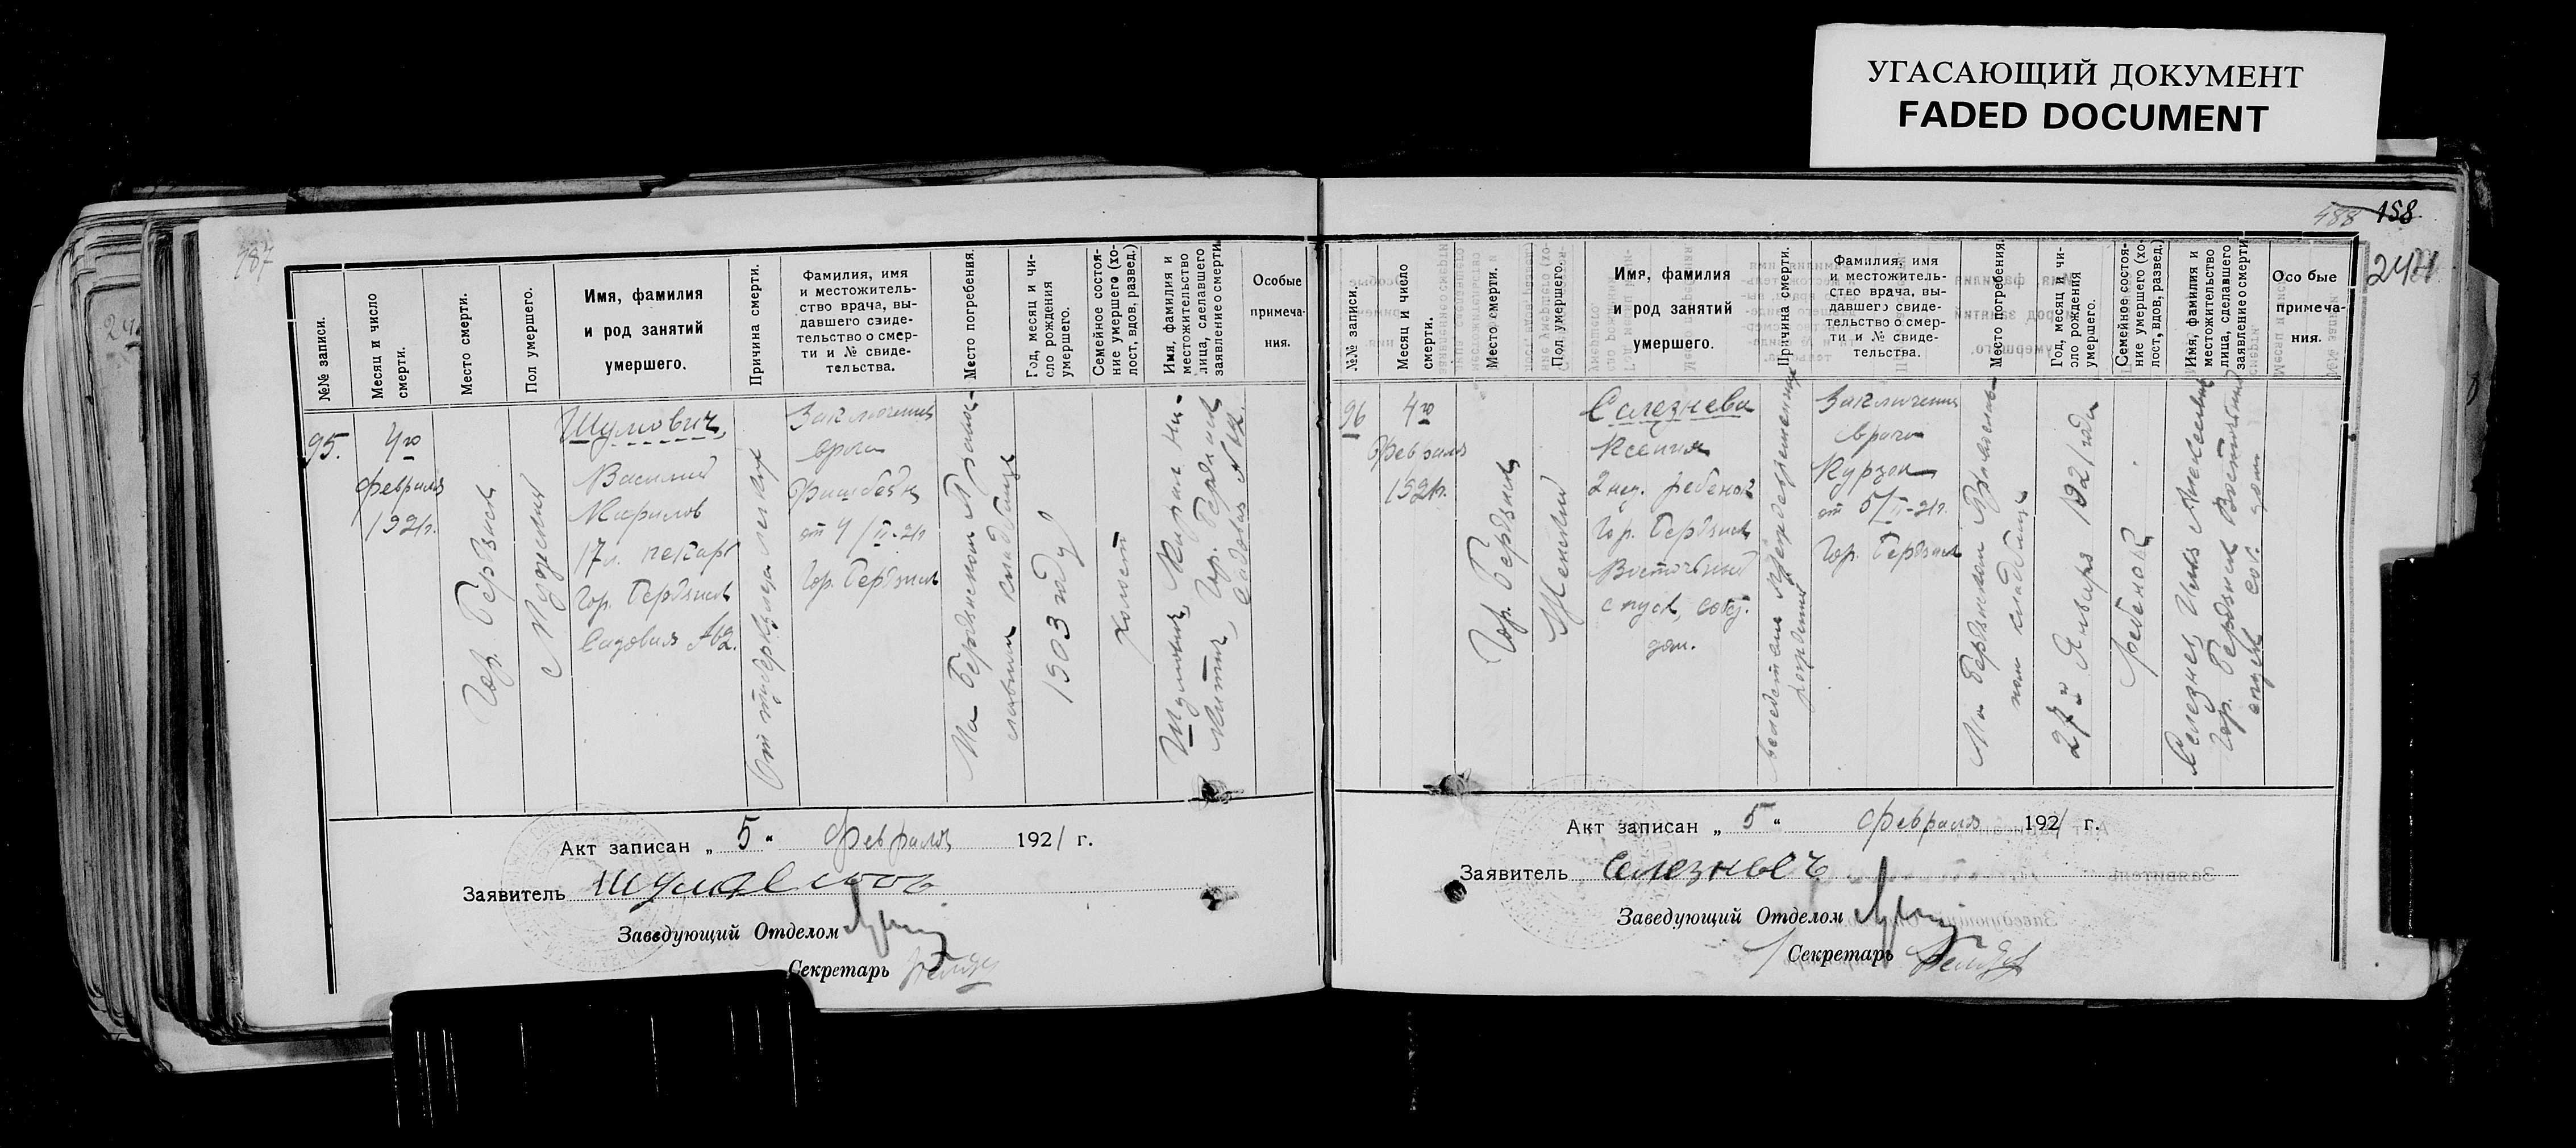 УГАСАЮЩИЙ ДОКУМЕНТ
FADED DOCUMENT
487
№№ записи.
Месяц и число
смерти.
Место смерти.
Пол умершего.
Имя, фамилия
и род занятий
умершего.
Причина смерти.
Фамилия, имя
и местожитель-
ство врача, вы-
давшего свиде-
тельство о смер-
ти и № свиде-
тельства.
Место погребения.
Год, месяц и чи-
сло рождения
умершего.
Семейное состоя-
ние умершего (хо-
лост, вдов, развед.)
Имя, фамилия и
местожительство
лица, сделавшего
заявление о смерти.
Особые
примеча-
ния.
95.
4го
февраля
1921г.
Гор. Бердянск
Мужской
Шумович,
Василий
Кирилов
17 л. пекарь
Гор. Бердянск
Садовая №62.
От туберкулеза легких
Заключение
врача
от 4/II-21г
Гор. Бердянск
На Бердянском Право-
славном кладбище
1903 году
холост
Гор. Бердянск
Садовая
Акт записан „ 5 “ февраля 1921 г.
Заявитель
Заведующий Отделом
Секретарь
488 158
2471
№№ записи.
Месяц и число
смерти.
Место смерти.
Пол умершего.
Имя, фамилия
и род занятий
умершего.
Причина смерти.
Фамилия, имя
и местожитель-
ство врача, вы-
давшего свиде-
тельство о смер-
ти и № свиде-
тельства.
Место погребения.
Год, месяц и чи-
сло рождения
умершего.
Семейное состоя-
ние умершего (хо-
лост, вдов, развед.)
Имя, фамилия и
местожительство
лица, сделавшего
заявление о смерти.
Особые
примеча-
ния.
96
4го
Февраля
1921г.
Гор. Бердянск
Женский
Селезнева
Ксения
2 нед. ребенок
Гор. Бердянск
Восточный
спуск, соб.
дом.
вследствие преждевременных
родов
Заключение
врача
Курзон
от 5/II-21г.
Гор. Бердянск
На Бердянском Православ-
ном кладбище
27го Января 1921 года
ребенок
Селезнев Илья Алексеевич
Гор. Бердянск Восточный
спуск соб. дом
Акт записан „ 5 “ февраля 1921 г.
Заявитель Селезневъ
Заведующий Отделом
Секретарь